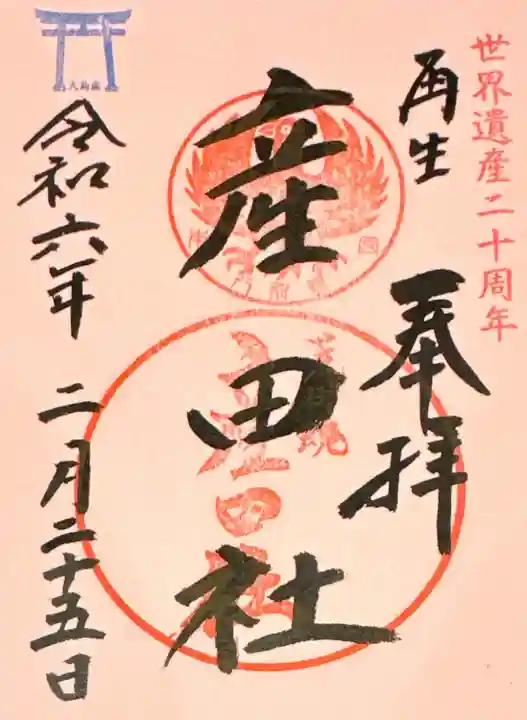 世界遺産二十周年
再生
奉拝
産田社
令和六年 二月二十五日